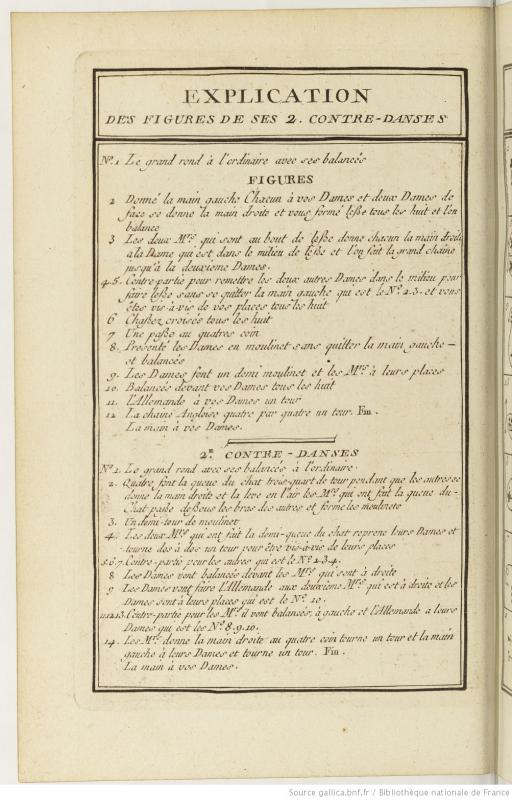 EXPLICATION
DES FIGURES DE SES 2. CONTRE-DANSES
Nº. 1 Le grand rond à l'ordinaire avec ses balancés
FIGURES
2 Donné la main gauche Chacun à vos Dames et deux Dames de
face se donne la main droite et vous formé leſse tous les huit et l'on
balance
3 Les deux Mrs. qui sont au bout de leſse donne chacun la main droite
à la Dame qui est dans le milieu de leſse et l'on fait la grand chaîne
jusqu'à la deuxieme Dames.
4.5. Contre-partie pour remettre les deux autres Dames dans le milieu pour
faire leſse sans se quitter la main gauche qui est le Nº. 2.3. et vous
êtes vis-à-vis de vos places tous les huit
6 Chaſsez croisés tous les huit
7 Une paſse au quatres coin
8. Présenté les Dames en moulinet sans quitter la main gauche —
et balancés
9. Les Dames font un demi moulinet et les Mrs. à leurs places
10. Balancés devant vos Dames tous les huit
11. l'Allemande à vos Dames un tour
12 La chaîne Angloise quatre par quatre un tour. Fin.
La main à vos Dames.
2e. CONTRE-DANSES
Nº 1. Le grand rond avec ses balancés à l'ordinaire.
2. Quatre font la queue du chat trois-quart de tour pendant que les autres se
donne la main droite et la leve en l'air les Mrs. qui ont fait la queue du-
Chat paſse deſsous les bras des autres et forme les moulinets
3. Un demi-tour de moulinet
4. Les deux Mrs. qui ont fait la demi-queue du chat reprene leurs Dames et
tourne dos à dos un tour pour être vis-à-vis de leurs places
5.6.7. Contre-partie pour les autres qui est le Nº. 2.3.4.
8 Les Dames vont balancés devant les Mrs. qui sont à droite
9 Les Dames vont faire l'Allemande aux deuxième Mrs. qui est à droite et les
Dames sont à leurs places qui est le Nº. 10.
11.12.13. Contre-partie pour les Mrs. il vont balancés, à gauche et l'Allemande a leurs
Dames qui est les Nº. 8.9.10.
14. Les Mrs. donne la main droite au quatre coin tourne un tour et la main
gauche à leurs Dames et tourne un tour. Fin.
La main à vos Dames.
Source gallica.bnf.fr / Bibliothèque nationale de France